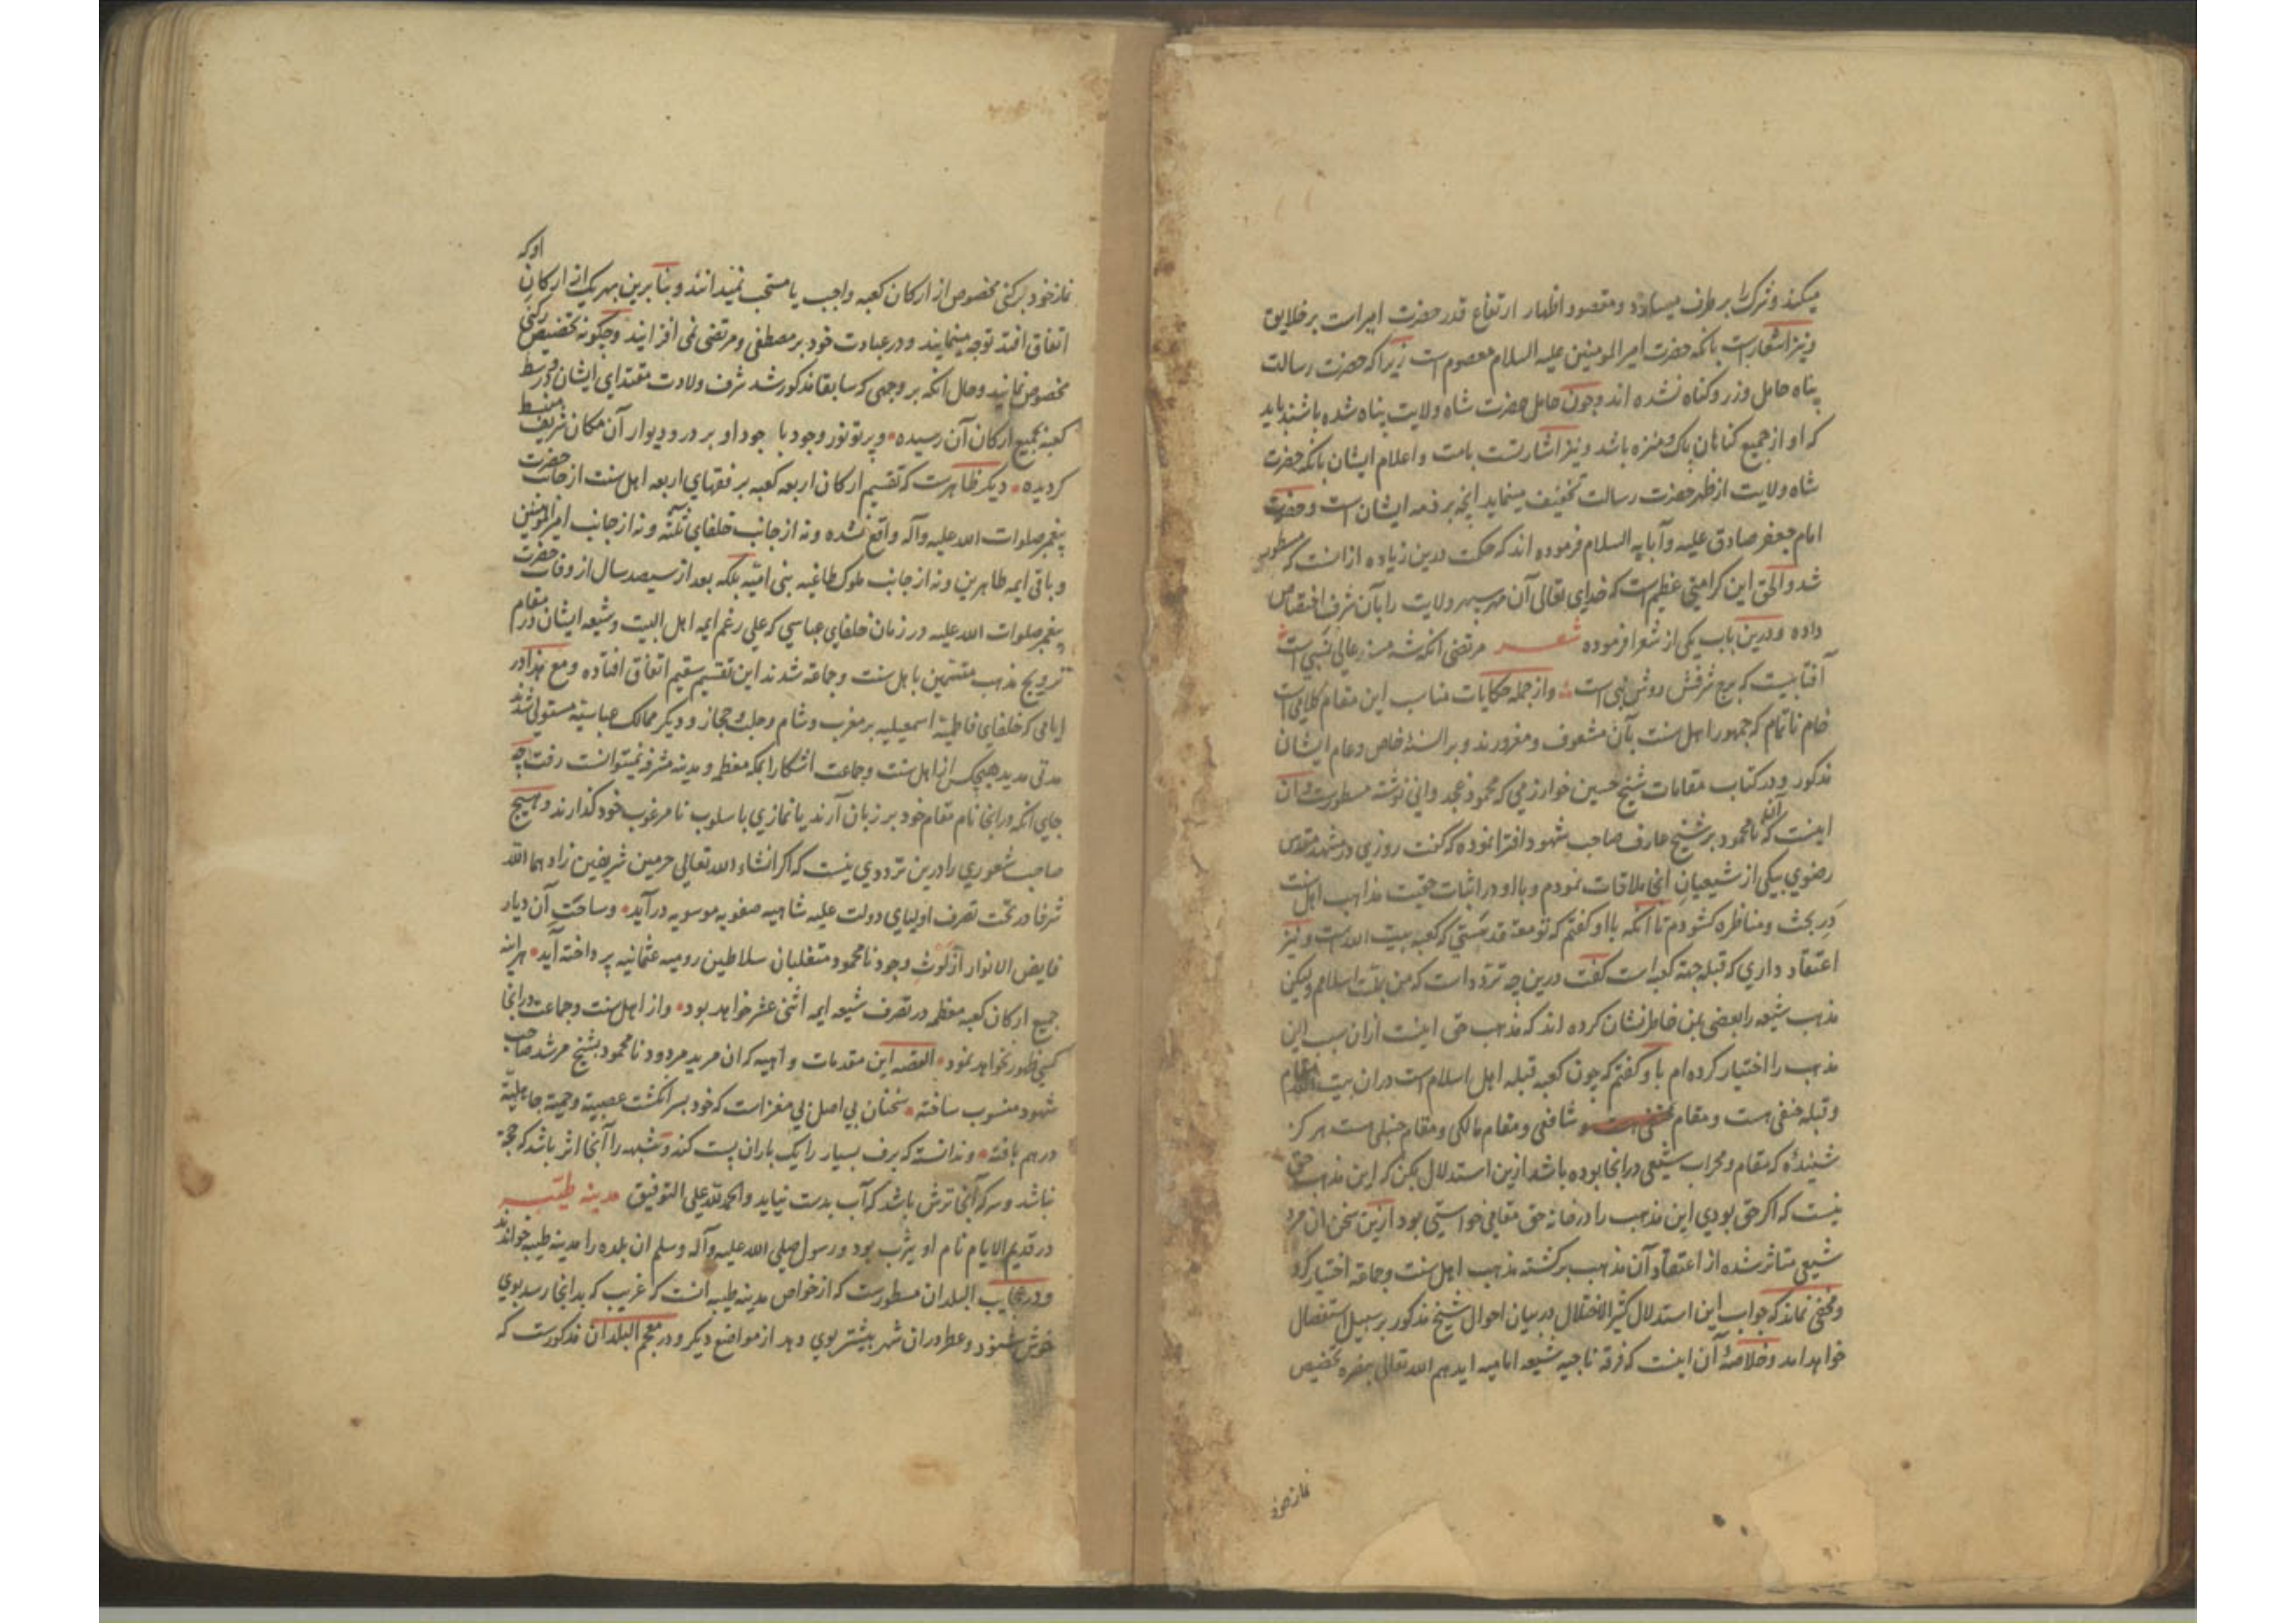 میکند و شرک را بر طرف میسازد و مقصود اظهار ارتفاع قدر حضرت امیر است بر خلایق
و نیز اشعار است بانکه حضرت امیر المومنین علیه السلام معصوم است زیرا که حضرت رسالت
پناه حامل وزر و کناه نشده اند و چون حامل حضرت شاه ولایت پناه شده باشند باید
که او از جمیع کناهان پاک و منزه باشد و نیز اشارتست بامت و اعلام ایشان بانکه حضرت
شاه ولایت از ظهر حضرت رسالت تخفیف مینماید انچه بر ذمه ایشان است و حضرت
امام جعفر صادق علیه و آبایه السلام فرموده اند که حکمت درین زیاده از انست که مسطور
شد و الحق این کرامتی عظیم است که خدای تعالی آن مهر سپهر ولایت را بآن شرف اختصاص
داده و درین باب یکی از شعرا فرموده شعر مرتضی انکه شه مسند عالی نسبی است
آفتابیست که برج شرفش دوش نبی است و از جمله حکایات مناسب این مقام کلامی است
خام ناتمام که جمهور اهل سنت بآن مشعوف و مغرورند و بر السنهٔ خاص و عام ایشان
مذکور و در کتاب مقامات شیخ حسین خوارزمی که محمود غجدوانی نوشته مسطور است و ان
اینست که آن نامحمود بر شیخ عارف صاحب شهود افترا نموده که گفت روزی در مشهد مقدس
رضوی بیکی از شیعیان آنجا ملاقات نمودم و با او در اثبات حقیت مذاهب اهل سنت
در بحث و مناظره کشودم تا آنکه با او کفتم که تو معتقد هستی که کعبه بیت الله است و نیز
اعتقاد داری که قبله جهة کعبه است کفت درین چه تردد است که من بملت اسلامم و لیکن
مذهب شیعه را بعضی بمن خاطر نشان کرده اند که مذهب حق اینست ازان سبب این
مذهب را اختیار کرده ام با و کفتم که چون کعبه قبله اهل اسلام است دران بیت الله مقام
و قبله حنفی هست و مقام شافعی و مقام مالکی و مقام حنبلی هست هرکز
شنیدهٔ که مقام و محراب شیعی در انجا بوده باشد ازین استدلال بکن که این مذهب حق
نیست که اکر حق بودی این مذهب را در خانه حق مقامی خواستی بود ازین سخن ان مرد
شیعی متاثر شده از اعتقاد آن مذهب برکشته مذهب اهل سنت و جماعة اختیار کرد
و مخفی نماند که جواب این استدلال کثیر الاختلال در بیان احوال شیخ مذکور بر سبیل استقصال
خواهد امد و خلاصهٔ آن اینست که فرقه ناجیه شیعه امامیه ایدهم الله تعالی بنصره تخصیص
نماز خود
نماز خود برکنی مخصوص از ارکان کعبه واجب یا مستحب نمیدانند و بنا برین بهر یک از ارکان او که
اتفاق افتد توجه مینمایند و در عبادت خود بر مصطفی و مرتضی نمی افزایند و چکونه تخصیص رکنی
مخصوص نمایند و حال انکه بر وجهی که سابقا مذکور شد شرف ولادت مقتدای ایشان در وسط
کعبه بجمیع ارکان آن رسیده و پرتو نور وجود با جود او بر در و دیوار آن مکان شریف منبسط
کردیده دیکر ظاهرست که تقسیم ارکان اربعه کعبه بر فقهای اربعه اهل سنت از جانب حضرت
پیغمبر صلوات الله علیه و آله واقع نشده و نه از جانب خلفای ثلثه و نه از جانب امیر المومنین
و باقی ایمه طاهرین و نه از جانب ملوک طاغیه بنی امیه بلکه بعد از سیصد سال از وفات حضرت
پیغمبر صلوات الله علیه در زمان خلفای عباسی که علی رغم ایمه اهل البیت و شیعه ایشان در مقام
ترویج مذهب متسمین باهل سنت و جماعة شدند این تقسیم سقیم اتفاق افتاده و مع هذا در
ایامی که خلفای فاطمیه اسمعیلیه بر مغرب و شام و حجاز و دیکر ممالک عباسیه مستولی شدند
مدتی مدید هیچکس از اهل سنت و جماعت اشکارا بمکه معظمه و مدینه مشرفه نمیتوانست رفت چه
جای انکه در انجا نام مقام خود بر زبان آرند یا نمازی باسلوب نامرغوب خود کذارند و هیچ
صاحب شعوری را درین ترددی نیست که اکر انشاء الله تعالی حرمین شریفین زاد هما الله
شرفا در تحت تصرف اولیای دولت علیه شاهیه صفویه موسویه در آید و ساحت آن دیار
فایض الانوار از لوث وجود نامحمود متغلبان سلاطین رومیه عثمانیه پرداخته آید هراینه
جمیع ارکان کعبه معظمه در تصرف شیعه ایمه اثنی عشر خواهد بود و از اهل سنت و جماعت در انجا
کسی ظهور نخواهد نمود القصه این مقدمات واهیه که ان مرید مردود نامحمود بشیخ مرشد صاحب
شهود منسوب ساخته سخنان بی اصل بی مغز است که خود بسر انکشت عصبیة و حمیة جاهلیة
درهم بافته و ندانسته که برف بسیار را یک باران پست کند و شبهه را آنجا اثر باشد که حجة
نباشد و سرکه آنجا ترش باشد که آب بدست نیاید و الحمد لله علی التوفیق مدینه طیبه
در قدیم الایام نام او یثرب بود و رسول صلی الله علیه و آله و سلم ان بلده را مدینه طیبه خواندند
و در عجایب البلدان مسطورست که از خواص مدینه طیبه انست که غریب که بدانجا رسد بوی
خوش شنود و عطر دران شهر بیشتر بوی دهد از مواضع دیکر و در معجم البلدان مذکورست که